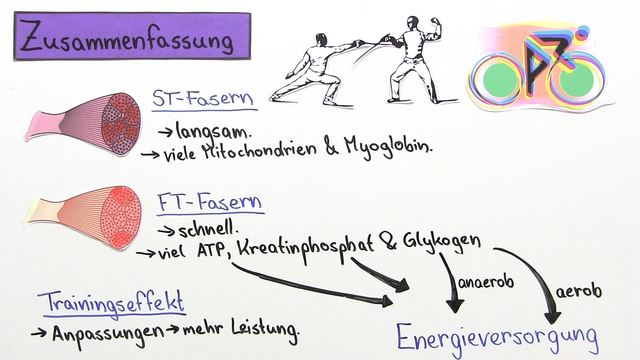 Zusammenfassung
ST-Fasern
→ langsam.
→ viele Mitochondrien & Myoglobin.
FT-Fasern
→ schnell.
→ viel ATP, Kreatinphosphat & Glykogen
anaerob
aerob
Trainingseffekt
→ Anpassungen → mehr Leistung.
Energieversorgung